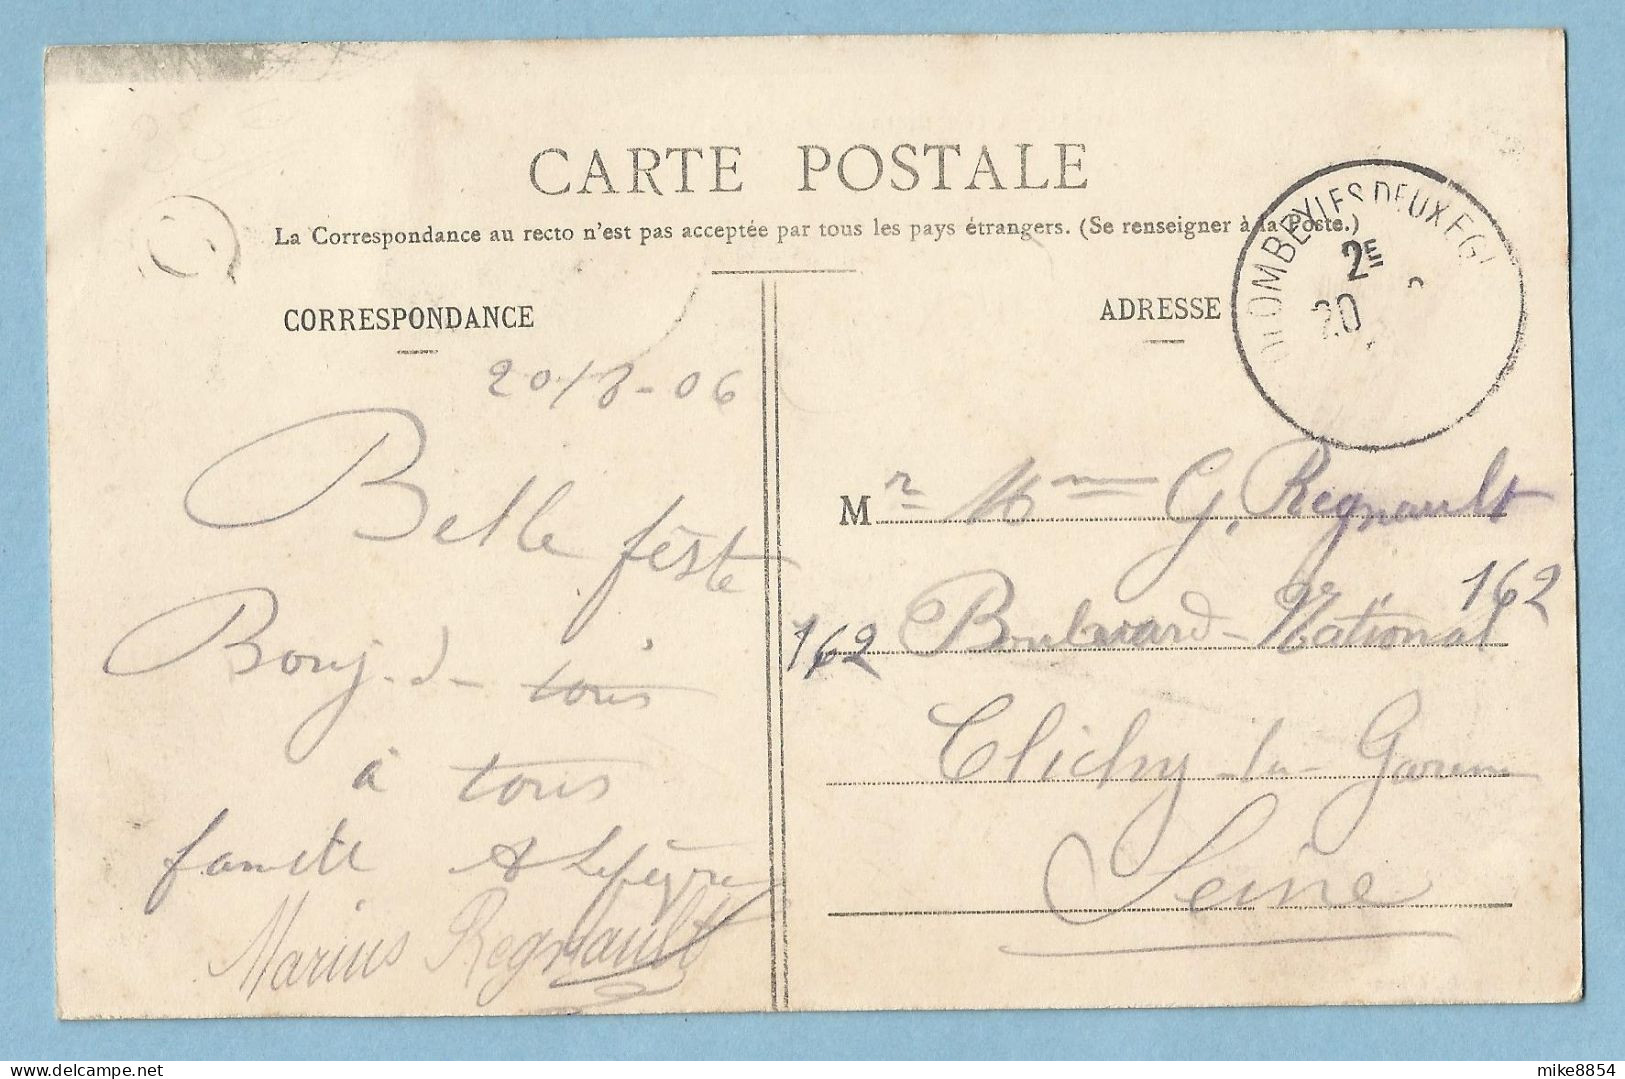 CARTE POSTALE
La Correspondance au recto n'est pas acceptée par tous les pays étrangers. (Se renseigner à la Poste.)
CORRESPONDANCE
ADRESSE
OLOMBEY LES DEUX EGL
2E
20
20/8-06
Belle fêste
Bonj-d- tous
à tous
A Lefèvre
Marius Regnault
M r Mme G. Regnault
162 Boulvard-National 162
Clichy-la-Garenne
Seine
mike8854